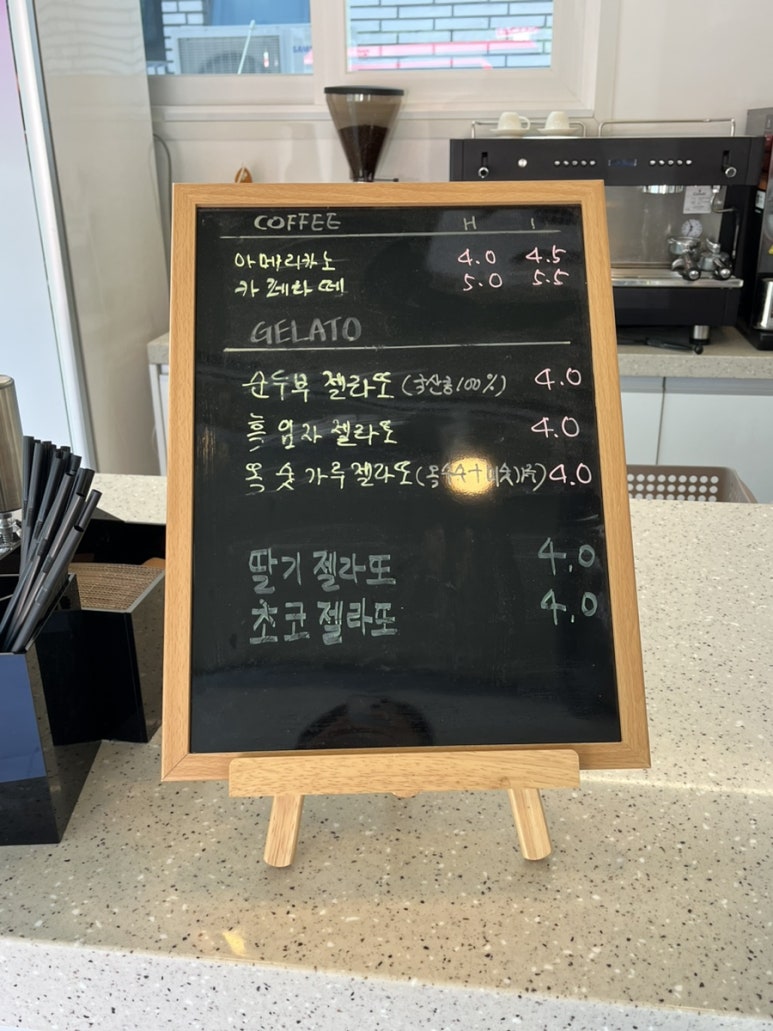 COFFEE H I
아메리카노 4.0 4.5
카페라떼 5.0 5.5
GELATO
순두부 젤라또 (국산콩 100%) 4.0
흑임자 젤라또 4.0
옥숫가루 젤라또 4.0
딸기 젤라또 4.0
초코 젤라또 4.0